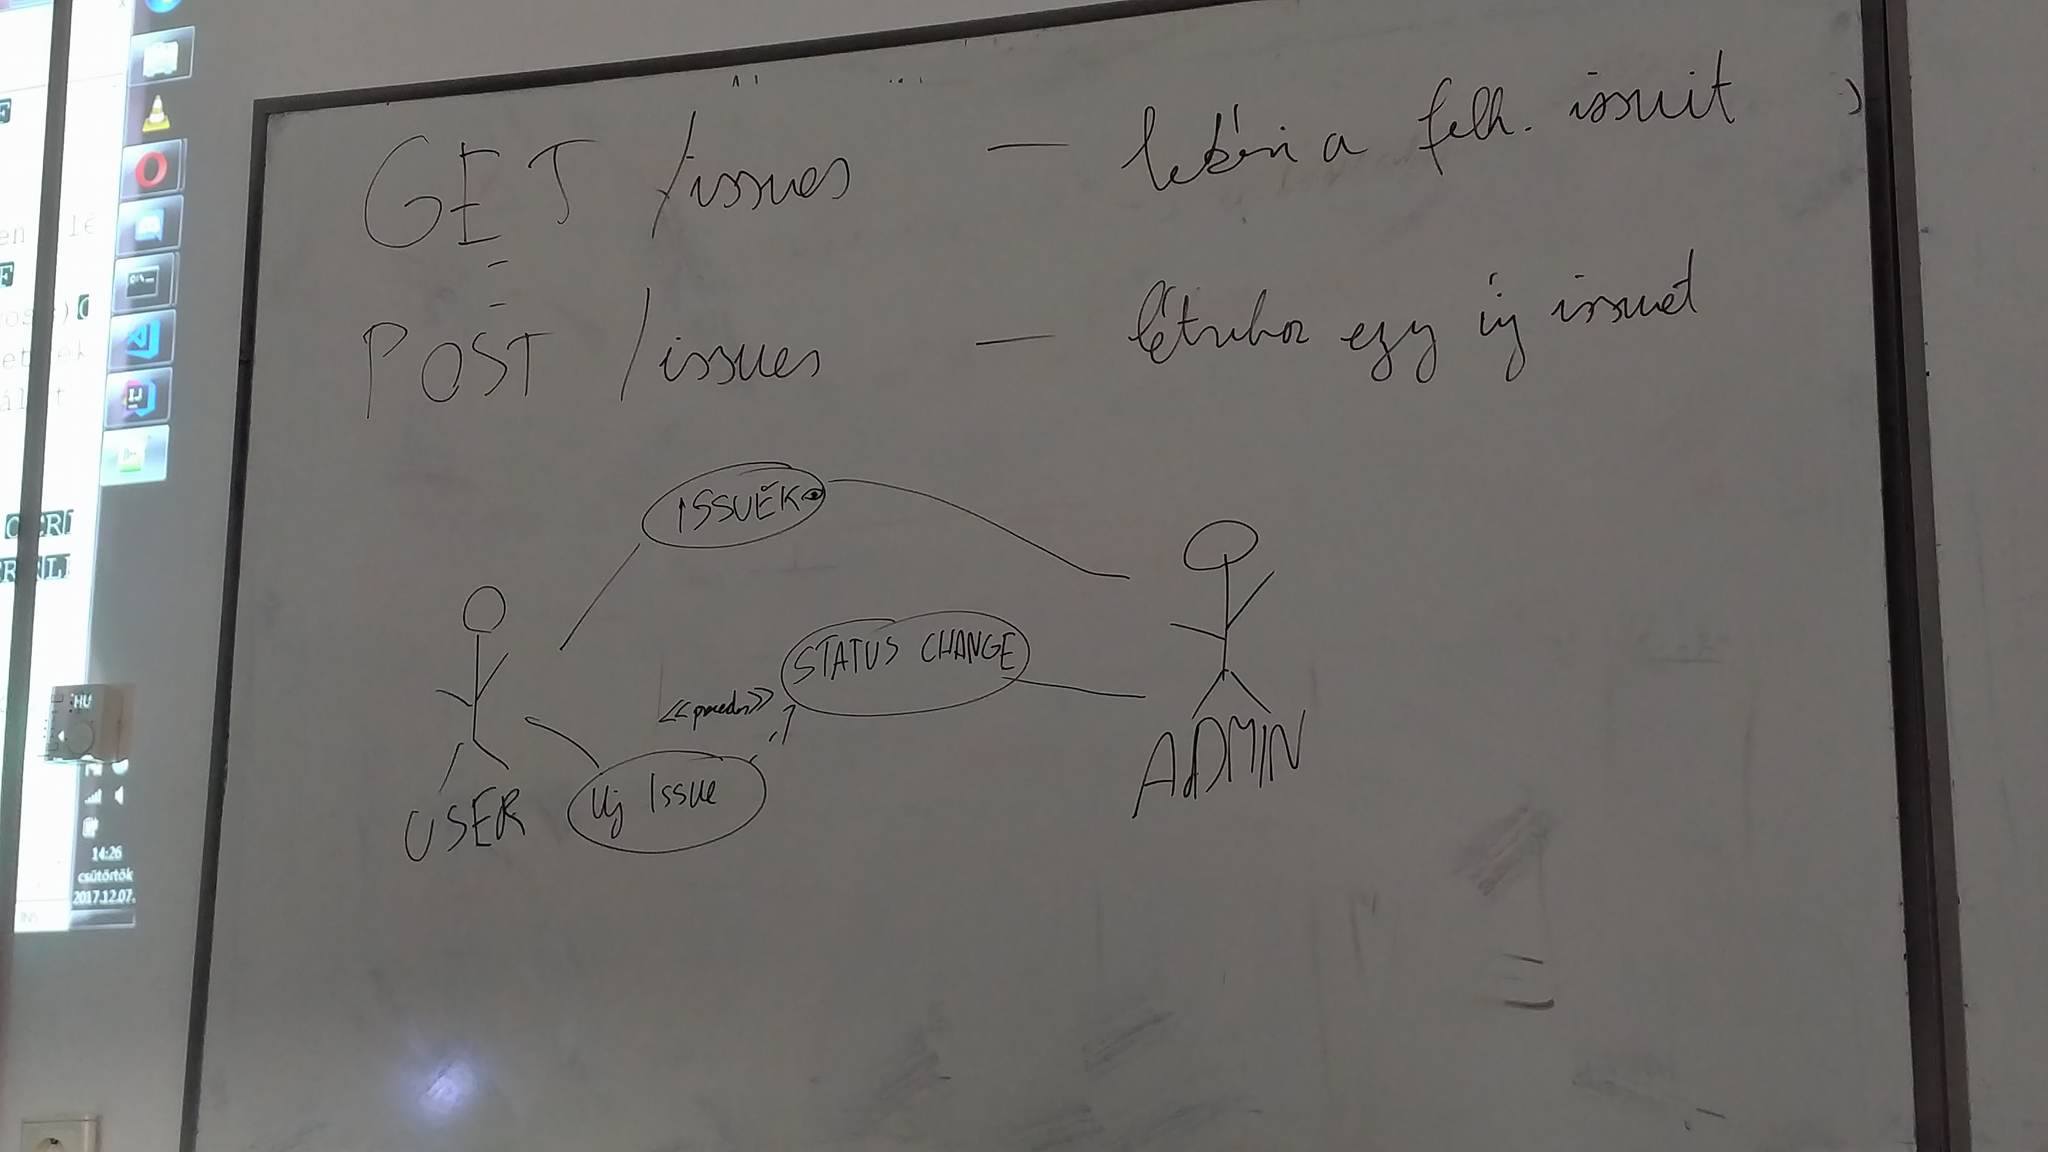 GET /issues — lekéri a felh. issuit
POST /issues — létrehoz egy új issuet
ISSUÉK
STATUS CHANGE
<<precedes>>
Uj Issue
USER
ADMIN
HU
14:26
csütörtök
2017.12.07.